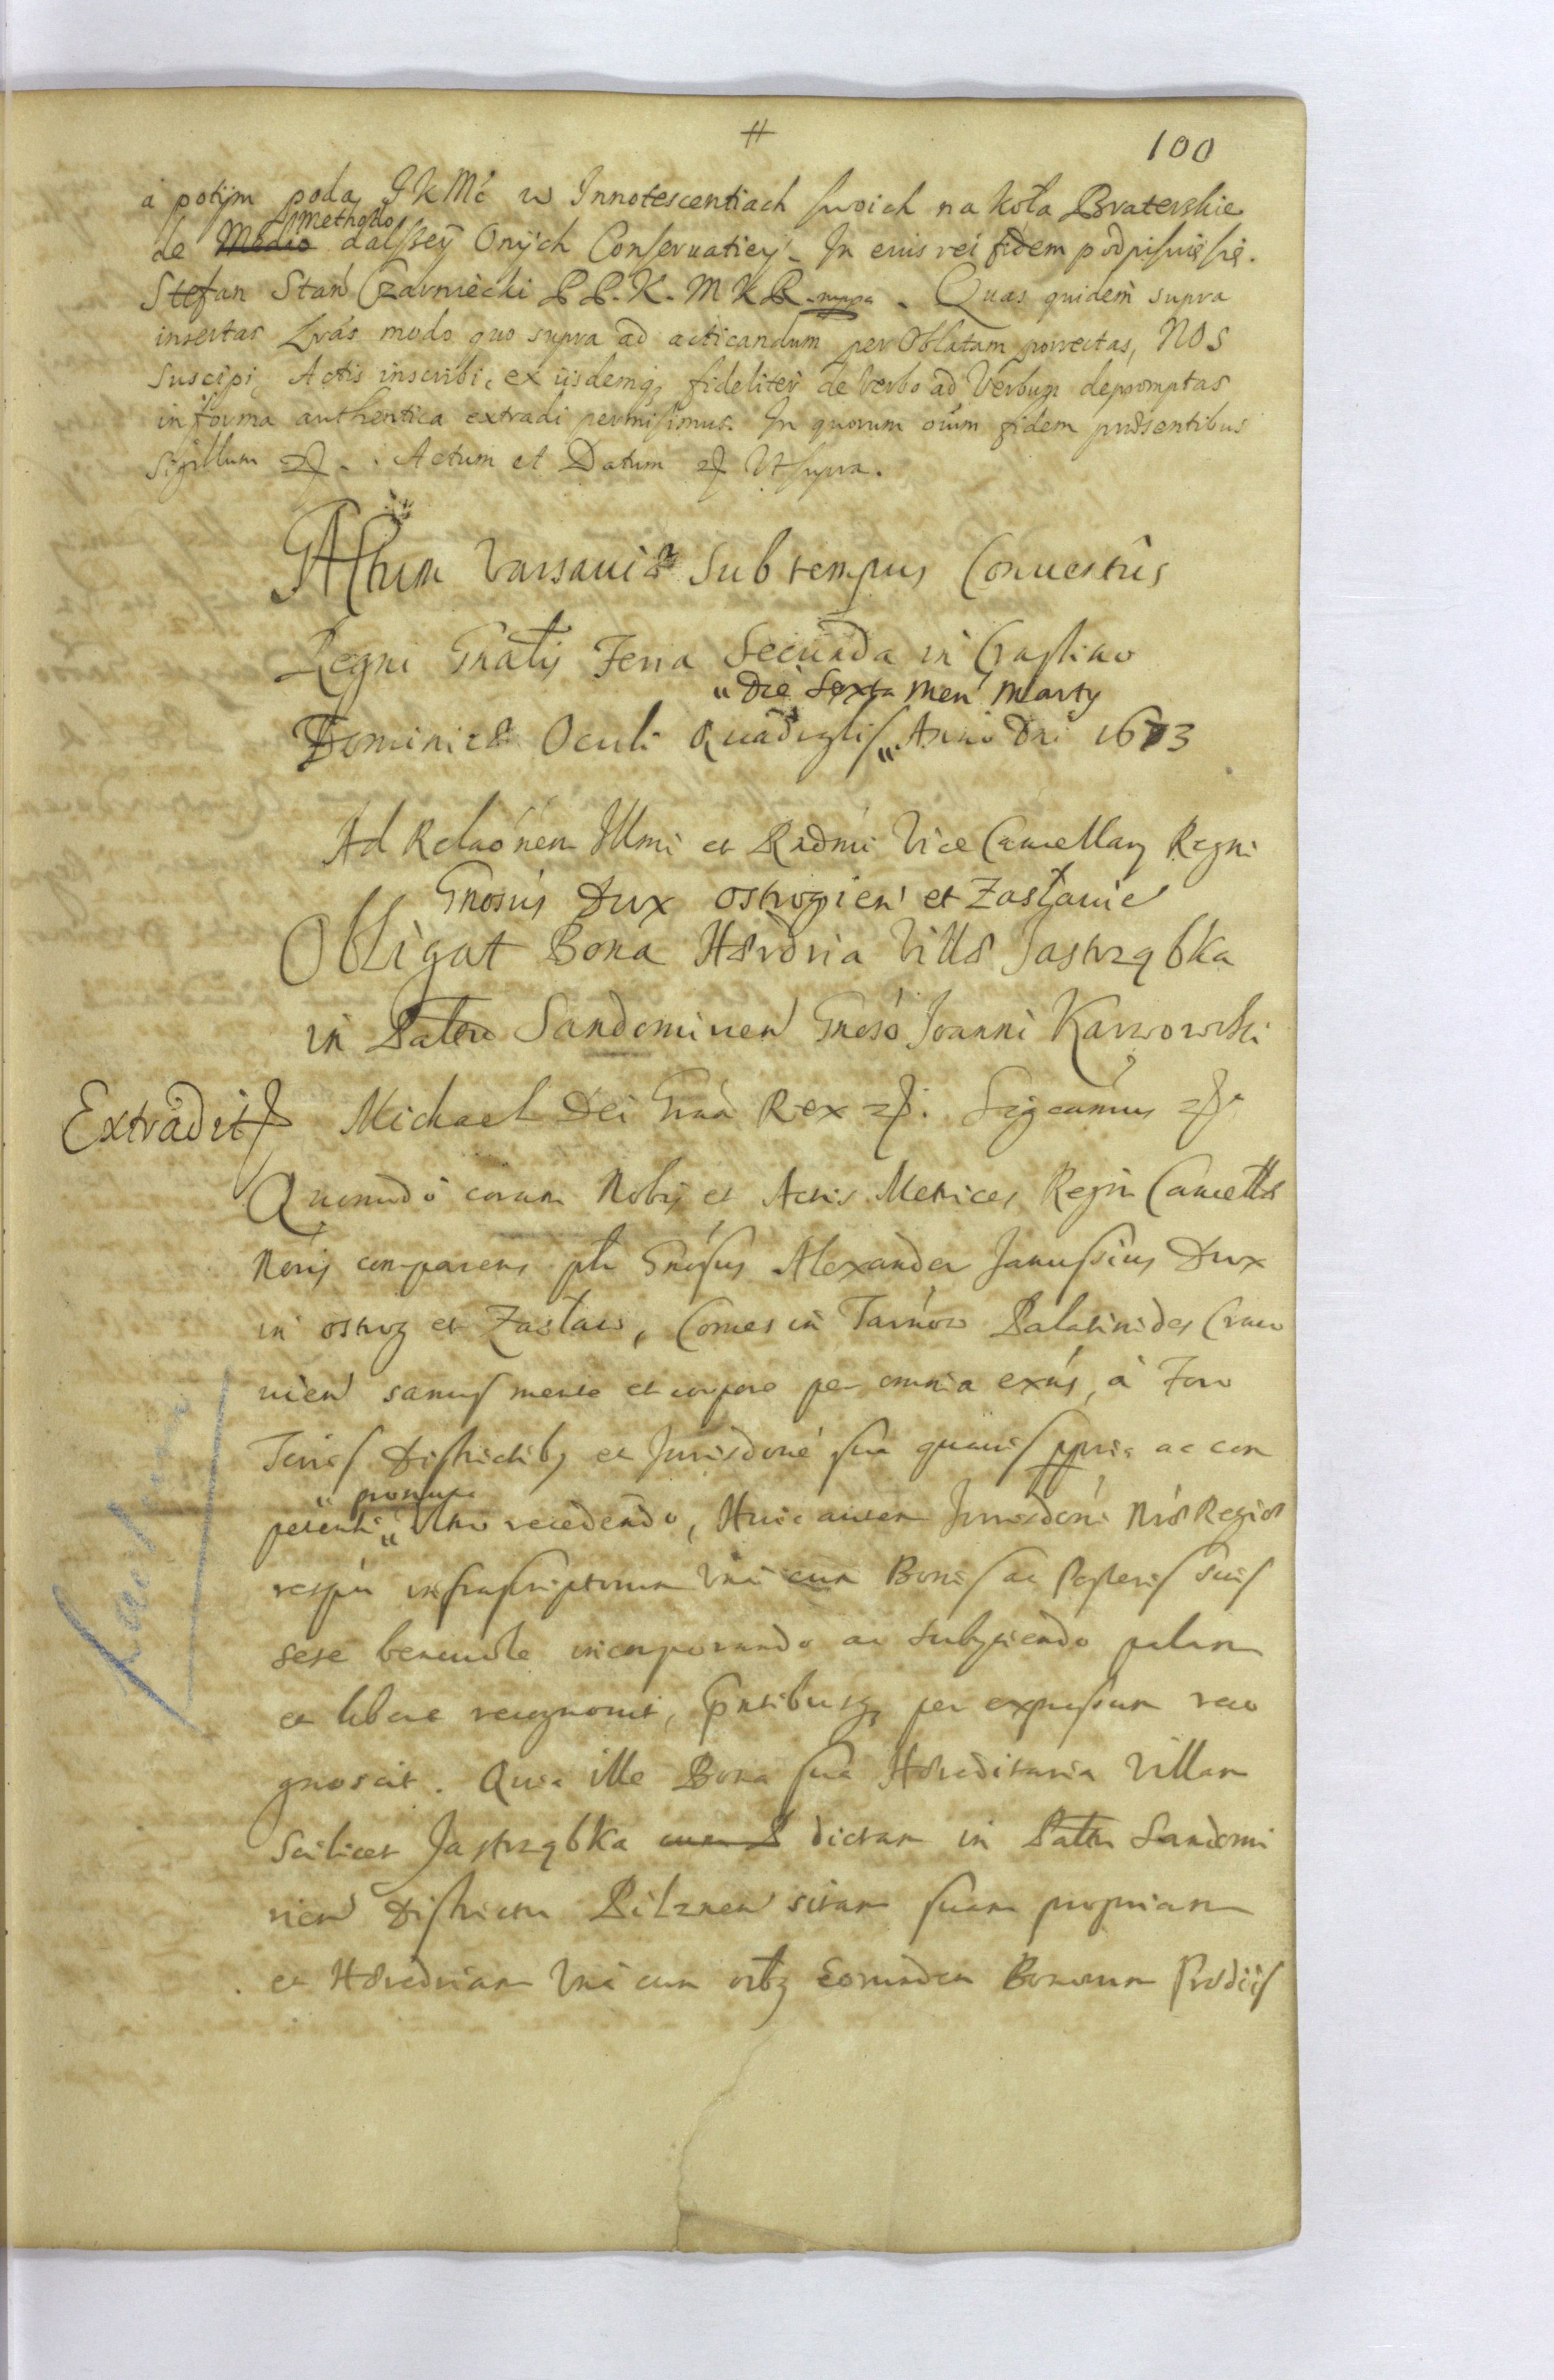 100
a potym poda JKMć w Innotescentiach swoich na koła Braterskie
de Modio methodo dalszey Onych Conseruatiey. In euis rei fidem podpisuię się.
Stefan Stan Czarniecki P P. K. M K R mppa. Quas quidem supra
insertas Lrás modo quo supra ad acticandum per Oblatam porrectas, NOS
suscipi, Actis inscribi, ex iisdemq, fideliter de Verbo ad Verbum depromptas
in forma authentica extradi permisimus. In quorum oium fidem prdsentibus
Sigillum etc. Actum et Datum etc Vt supra.
Actum Varsauiæ Sub tempus Conuentus
Regni Gnalis Feria Secunda in Crastino
"Die Sexta Men Marty
Dominicæ Oculi Quadrglis "Anno Dni 1673
Ad Relaónem Illmi et Rndmi Vice Cancellary Regni
Gnosus Dux Ostrogien et Zaslauie
Obligat Bona Hærdria Villæ Jastrząbka
in Pattu Sandomirien Gnoso Joanni Karwowski
Extradit
Michael Dei Gra Rex etc. Sigcamus etc
Quomodo coram Nobis et Actis Metrices Regni Cancellæ
Nris comparens pltr Gnosus Alexander Janussius Dux
in Ostrog et Zaslaw, Comes in Tarnow Palatinides Craco
uien sanus mente et corpore per omnia exns, à Foro
Terris Districtibq et Jurisdone sua quauis ppria ac com
petenti "promptu Vltro recedendo, Huic autem Jurisdoni Nræ Regiæ
respu infrascriptorum Vna cum Bonis ac Posteris suis
sese beneuole incorporando ac subyciendo palam
et libere recognouit, Pntibusq, per expressum reco
gnoscit. Quia ille Bona sua Hæreditaria Villam
scilicet Jastrząbka cum P dictam in Pattu Sandomi
rien Districtu Pilznen sitam suam propriam
et Hæredriam Vna cum oibq Eorundem Bonorum Prædiis